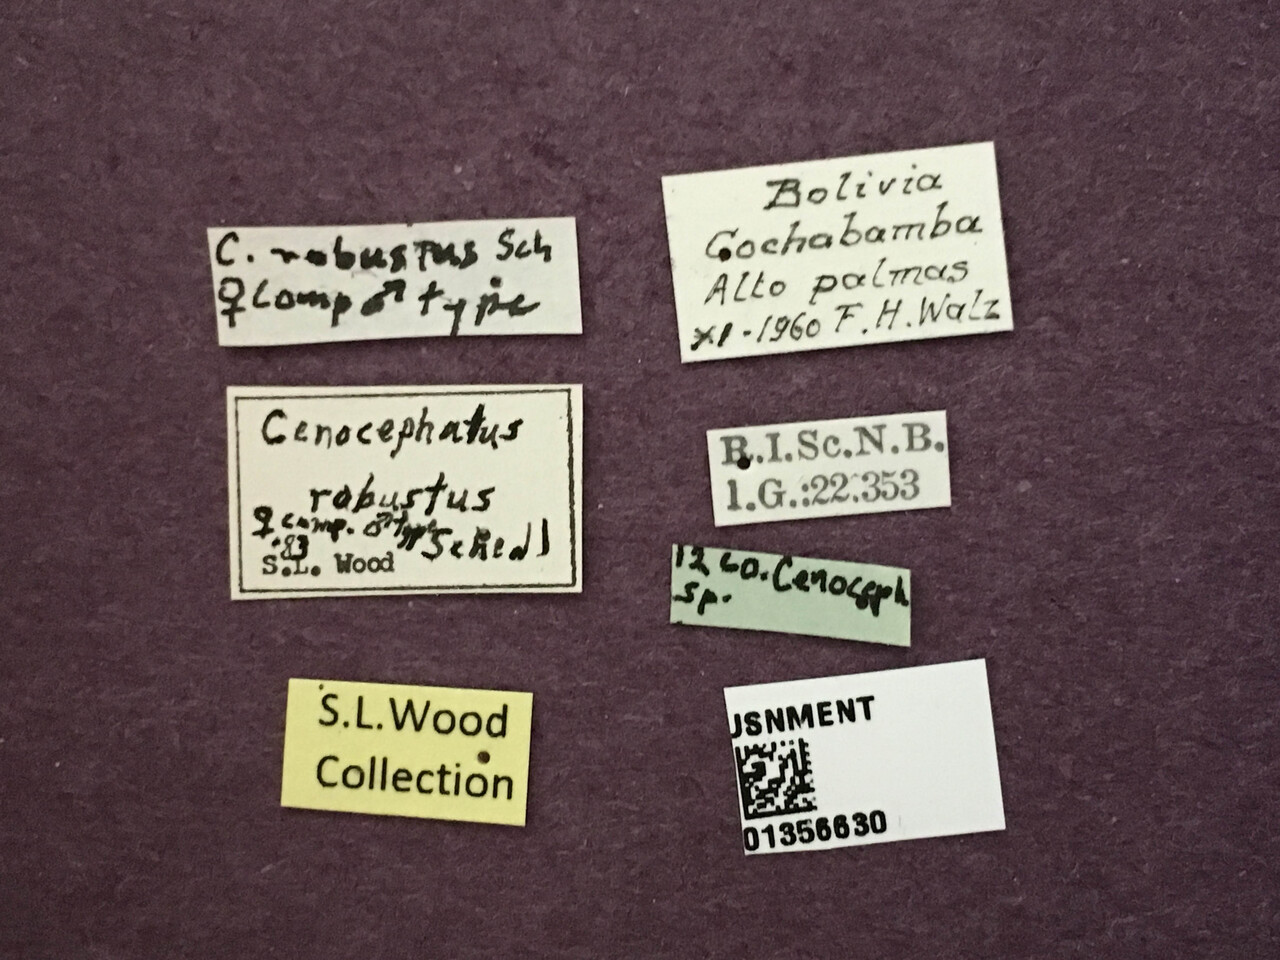 C. robustus Sch
♀ Comp ♂ type
Cenocephatus
robustus
♀ comp. ♂ type Schedl
'83
S.L. Wood
S.L.Wood
Collection
Bolivia
Cochabamba
Alto palmas
XI-1960 F.H.Walz
R.I.Sc.N.B.
I.G.:22.353
12 co. Cenoceph
sp.
USNMENT
01356630